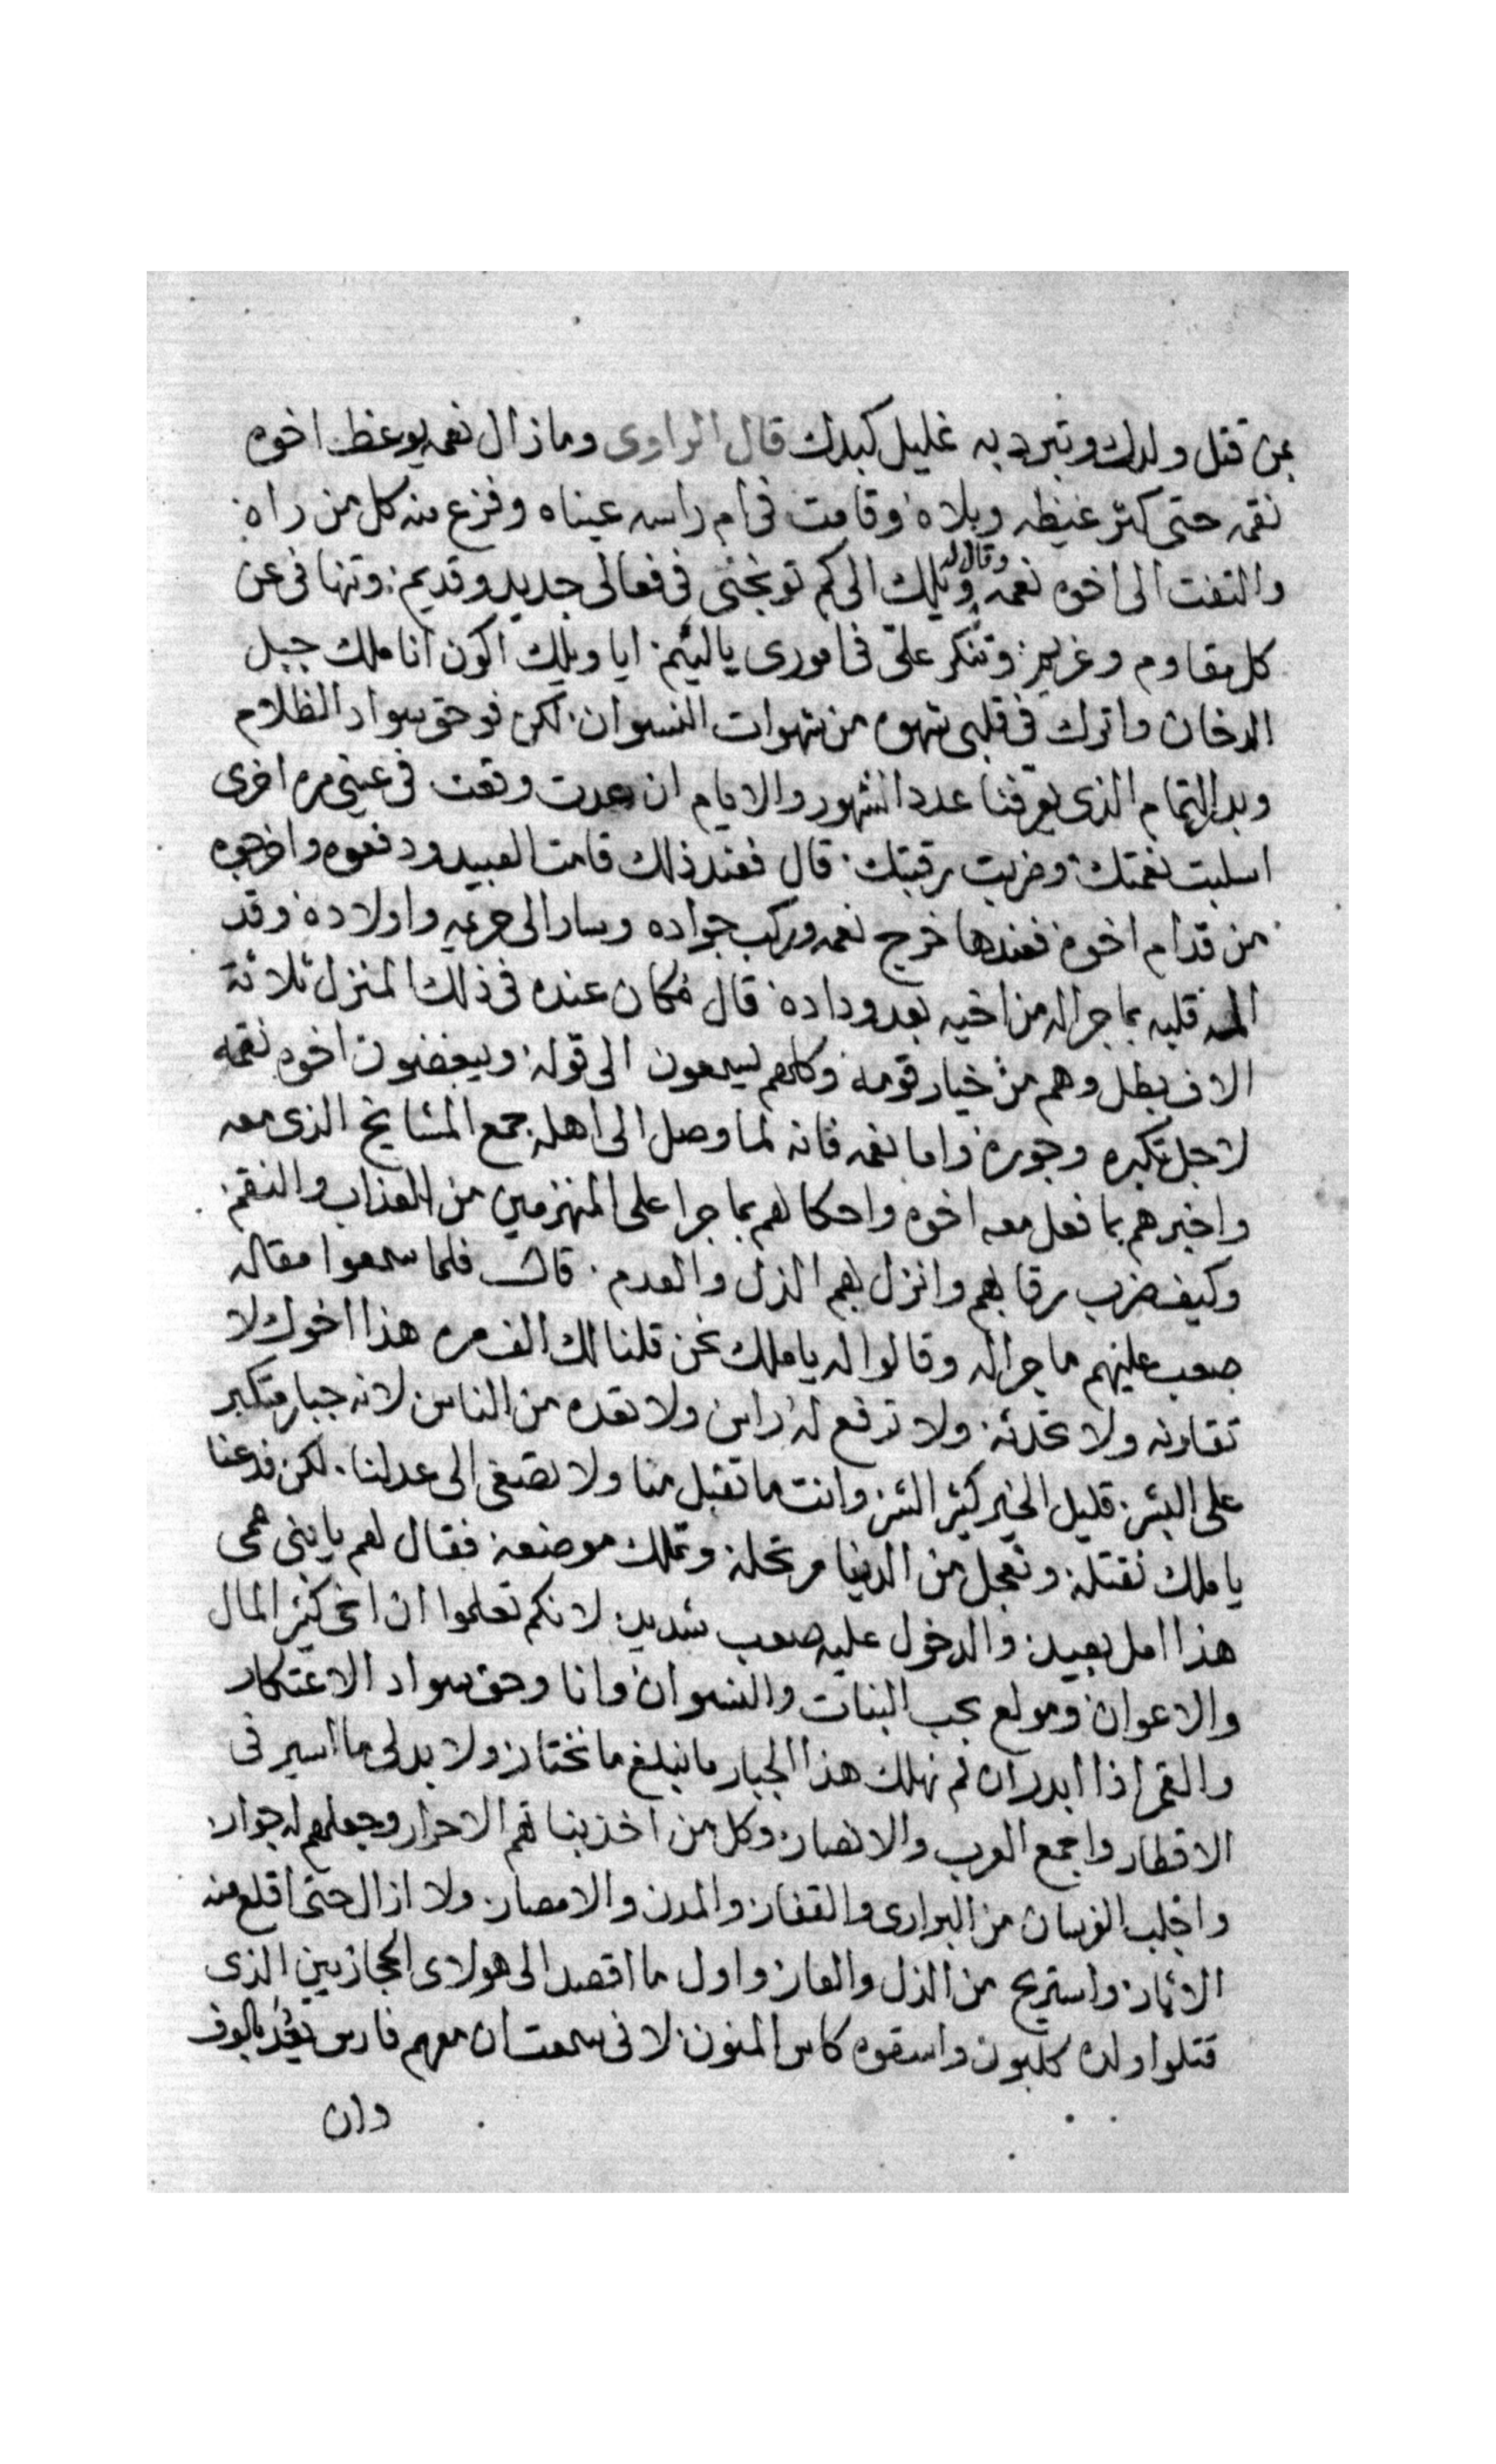 بمن قتل ولدك وتبرد به غليل كبدك قال الراوى وما زال نعمه يوعظ اخوه
نقمه حتى كثر غيظه وبلاه وقامت فى ام راسه عيناه وفزع منه كل من راه
والتفت الى اخوه نعمه وقال له ويلك الى كم توبخنى فى فعالى جديد وقديم وتنهانى عن
كل مقاوم وغريم وتنكر على فى امورى يا لئيم ايا ويلك اكون انا ملك جبل
الدخان واترك فى قلبى شهوه من شهوات النسوان لكن فوحق سواد الظلام
وبدر التمام الذى يعرفنا عدد الشهور والايام ان عدت وقعت فى عينى مره اخرى
اسلبت نعمتك وضربت رقبتك قال فعند ذلك قامت العبيد ودفعوه واخرجوه
من قدام اخوه فعندها خرج نعمه وركب جواده وسار الى حريمه واولاده وقد
الم قلبه بما جرا له من اخيه بعد وداده قال فكان عنده فى ذلك المنزل ثلاثة
الاف بطل وهم من خيار قومه وكلهم يسمعون الى قوله ويبغضون اخوه نقمه
لاجل تكبره وجوره واما نعمه فانه لما وصل الى اهله جمع المشايخ الذى معه
واخبرهم بما فعل معه اخوه واحكا لهم بما جرا على المنهزمين من العذاب والنقم
وكيف ضرب رقابهم وانزل بهم الذل والعدم قال فلما سمعوا مقاله
صعب عليهم ما جرا له وقالوا له يا ملك نحن قلنا لك الف مره هذا اخوك لا
تقاونه ولا تحدثه ولا ترفع له راس ولا تعده من الناس لانه جبار متكبر
على البشر قليل الخير كثير الشر وانت ما تقبل منا ولا تصغى الى عدلنا لكن فدعنا
يا ملك نقتله ونعجل من الدنيا مرتحله وتملك موضعه فقال لهم يا بنى عمى
هذا امل بعيد والدخول عليه صعب شديد لانكم تعلموا ان اخى كثير المال
والاعوان ومولع بحب البنات والنسوان وانا وحق سواد الاعتكار
والقمر اذا ابدر ان لم نهلك هذا الجبار ما نبلغ ما نختار ولا بد لى ما اسير فى
الاقطار واجمع العرب والانصار وكل من اخذ بناتهم الاحرار وجعلهم له جوار
واجلب الفرسان من البرارى والقفار والمدن والامصار ولا ازال حتى اقلع منه
الاثار واستريح من الذل والعار واول ما اقصد الى هولاى الحجازيين الذى
قتلوا ولده كلبون واسقوه كاس المنون لانى سمعت ان معهم فارس يعد بالوف
وان